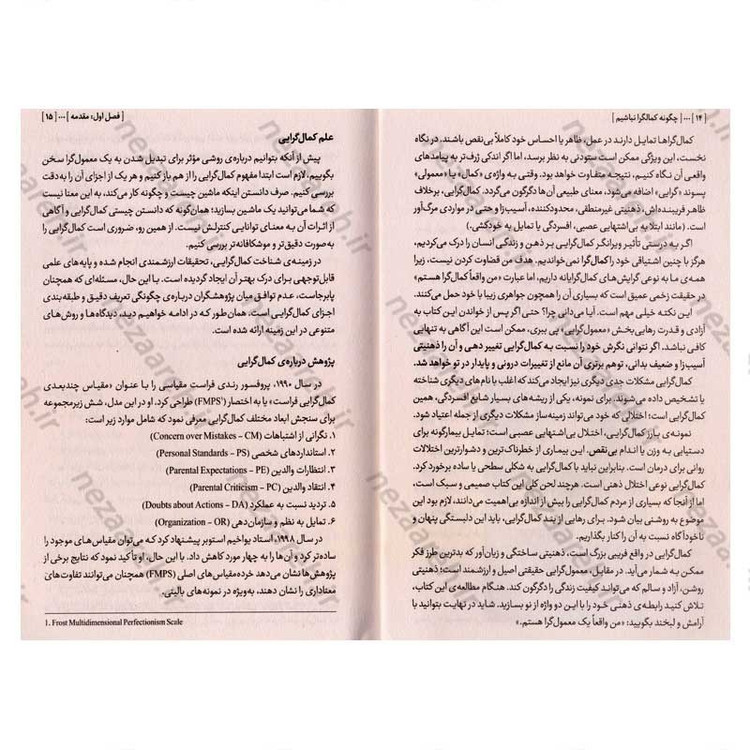 [ ۱۴ ] ... [ چگونه کمالگرا نباشیم ]
کمال‌گراها تمایل دارند در عمل، ظاهر یا احساس خود کاملاً بی‌نقص باشند. در نگاه
نخست، این ویژگی ممکن است ستودنی به نظر برسد، اما اگر اندکی ژرف‌تر به پیامدهای
واقعی آن نگاه کنیم، نتیجه متفاوت خواهد بود. وقتی به واژه‌ی «کمال» یا «معمولی»
پسوند «گرایی» اضافه می‌شود، معنای طبیعی آن‌ها دگرگون می‌گردد. کمال‌گرایی، برخلاف
ظاهر فریبنده‌اش، ذهنیتی غیرمنطقی، محدودکننده، آسیب‌زا و حتی در مواردی مرگ‌آور
است. (مانند ابتلا به بی‌اشتهایی عصبی، افسردگی یا تمایل به خودکشی).
اگر به درستی تأثیر ویرانگر کمال‌گرایی بر ذهن و زندگی انسان را درک می‌کردیم،
هرگز با چنین اشتیاقی خود را کمال‌گرا نمی‌خواندیم. هدف من قضاوت کردن نیست، زیرا
همه‌ی ما به نوعی گرایش‌های کمال‌گرایانه داریم، اما عبارت «من واقعاً کمال‌گرا هستم»
در حقیقت زخمی عمیق است که بسیاری آن را همچون جواهری زیبا با خود حمل می‌کنند.
این نکته خیلی مهم است. آیا می‌دانی چرا؟ حتی اگر پس از خواندن این کتاب به
آزادی و قدرت رهایی‌بخش «معمول‌گرایی» پی ببری، ممکن است این آگاهی به تنهایی
کافی نباشد. اگر نتوانی نگرش خود را نسبت به کمال‌گرایی تغییر دهی و آن را ذهنیتی
آسیب‌زا و ضعیف بدانی، توهم برتری آن مانع از تغییرات درونی و پایدار در تو خواهد شد.
کمال‌گرایی مشکلات جدی دیگری نیز ایجاد می‌کند که اغلب با نام‌های دیگری شناخته
یا تشخیص داده می‌شوند. برای نمونه، یکی از ریشه‌های بسیار شایع افسردگی، همین
کمال‌گرایی است؛ اختلالی که خود می‌تواند زمینه‌ساز مشکلات دیگری از جمله اعتیاد شود.
نمونه‌ی بارز کمال‌گرایی، اختلال بی‌اشتهایی عصبی است؛ تمایل بیمارگونه برای
دستیابی به وزن یا اندام بی‌نقص. این بیماری از خطرناک‌ترین و دشوارترین اختلالات
روانی برای درمان است. بنابراین نباید با کمال‌گرایی به شکلی سطحی یا ساده برخورد کرد.
کمال‌گرایی نوعی اختلال ذهنی است. هرچند لحن کلی این کتاب صمیمی و سبک است،
اما از آنجا که بسیاری از مردم کمال‌گرایی را بیش از اندازه بی‌اهمیت می‌دانند، لازم بود این
موضوع به روشنی بیان شود. برای رهایی از بند کمال‌گرایی، باید این دلبستگی پنهان و
ناخودآگاه نسبت به آن را کنار بگذاریم.
کمال‌گرایی در واقع فریبی بزرگ است، ذهنیتی ساختگی و زیان‌آور که بدترین طرز فکر
ممکن به شمار می‌آید. در مقابل، معمول‌گرایی حقیقتی اصیل و ارزشمند است؛ ذهنیتی
روشن، آزاد و سالم که می‌تواند کیفیت زندگی را دگرگون کند. هنگام مطالعه‌ی این کتاب،
تلاش کنید رابطه‌ی ذهنی خود را با این دو واژه از نو بسازید. شاید در نهایت بتوانید با
آرامش و لبخند بگویید: «من واقعاً یک معمول‌گرا هستم.»
[ فصل اول: مقدمه ] ... [ ۱۵ ]
علم کمال‌گرایی
پیش از آنکه بتوانیم درباره‌ی روشی مؤثر برای تبدیل شدن به یک معمول‌گرا سخن
بگوییم، لازم است ابتدا مفهوم کمال‌گرایی را از هم باز کنیم و هر یک از اجزای آن را به‌دقت
بررسی کنیم. صرف دانستن اینکه ماشین چیست و چگونه کار می‌کند، به این معنا نیست
که شما می‌توانید یک ماشین بسازید؛ همان‌گونه که دانستن چیستی کمال‌گرایی و آگاهی
از اثرات آن به معنای توانایی کنترلش نیست. از همین رو، ضروری است کمال‌گرایی را
به‌صورت دقیق‌تر و موشکافانه‌تر بررسی کنیم.
در زمینه‌ی شناخت کمال‌گرایی، تحقیقات ارزشمندی انجام شده و پایه‌های علمی
قابل‌توجهی برای درک بهتر آن ایجاد گردیده است. با این حال، مسئله‌ای که همچنان
پابرجاست، عدم توافق میان پژوهشگران درباره‌ی چگونگی تعریف دقیق و طبقه‌بندی
اجزای کمال‌گرایی است. همان‌طور که در ادامه خواهیم دید، دیدگاه‌ها و روش‌های
متنوعی در این زمینه ارائه شده است.
پژوهش درباره‌ی کمال‌گرایی
در سال ۱۹۹۰، پروفسور رندی فراست مقیاسی را با عنوان «مقیاس چندبعدی
کمال‌گرایی فراست» یا به اختصار (FMPS¹) طراحی کرد. او در این مدل، شش زیرمجموعه
برای سنجش ابعاد مختلف کمال‌گرایی معرفی نمود که شامل موارد زیر است:
۱. نگرانی از اشتباهات (Concern over Mistakes – CM)
۲. استانداردهای شخصی (Personal Standards – PS)
۳. انتظارات والدین (Parental Expectations – PE)
۴. انتقاد والدین (Parental Criticism – PC)
۵. تردید نسبت به عملکرد (Doubts about Actions – DA)
۶. تمایل به نظم و سازمان‌دهی (Organization – OR)
در سال ۱۹۹۸، استاد یواخیم استوبر پیشنهاد کرد که می‌توان مقیاس‌های موجود را
ساده‌تر کرد و آن‌ها را به چهار مورد کاهش داد. با این حال، او تأکید نمود که نتایج برخی از
پژوهش‌ها نشان می‌دهد خرده‌مقیاس‌های اصلی (FMPS) همچنان می‌توانند تفاوت‌های
معناداری را نشان دهند، به‌ویژه در نمونه‌های بالینی.
1. Frost Multidimensional Perfectionism Scale
nezaareh.ir